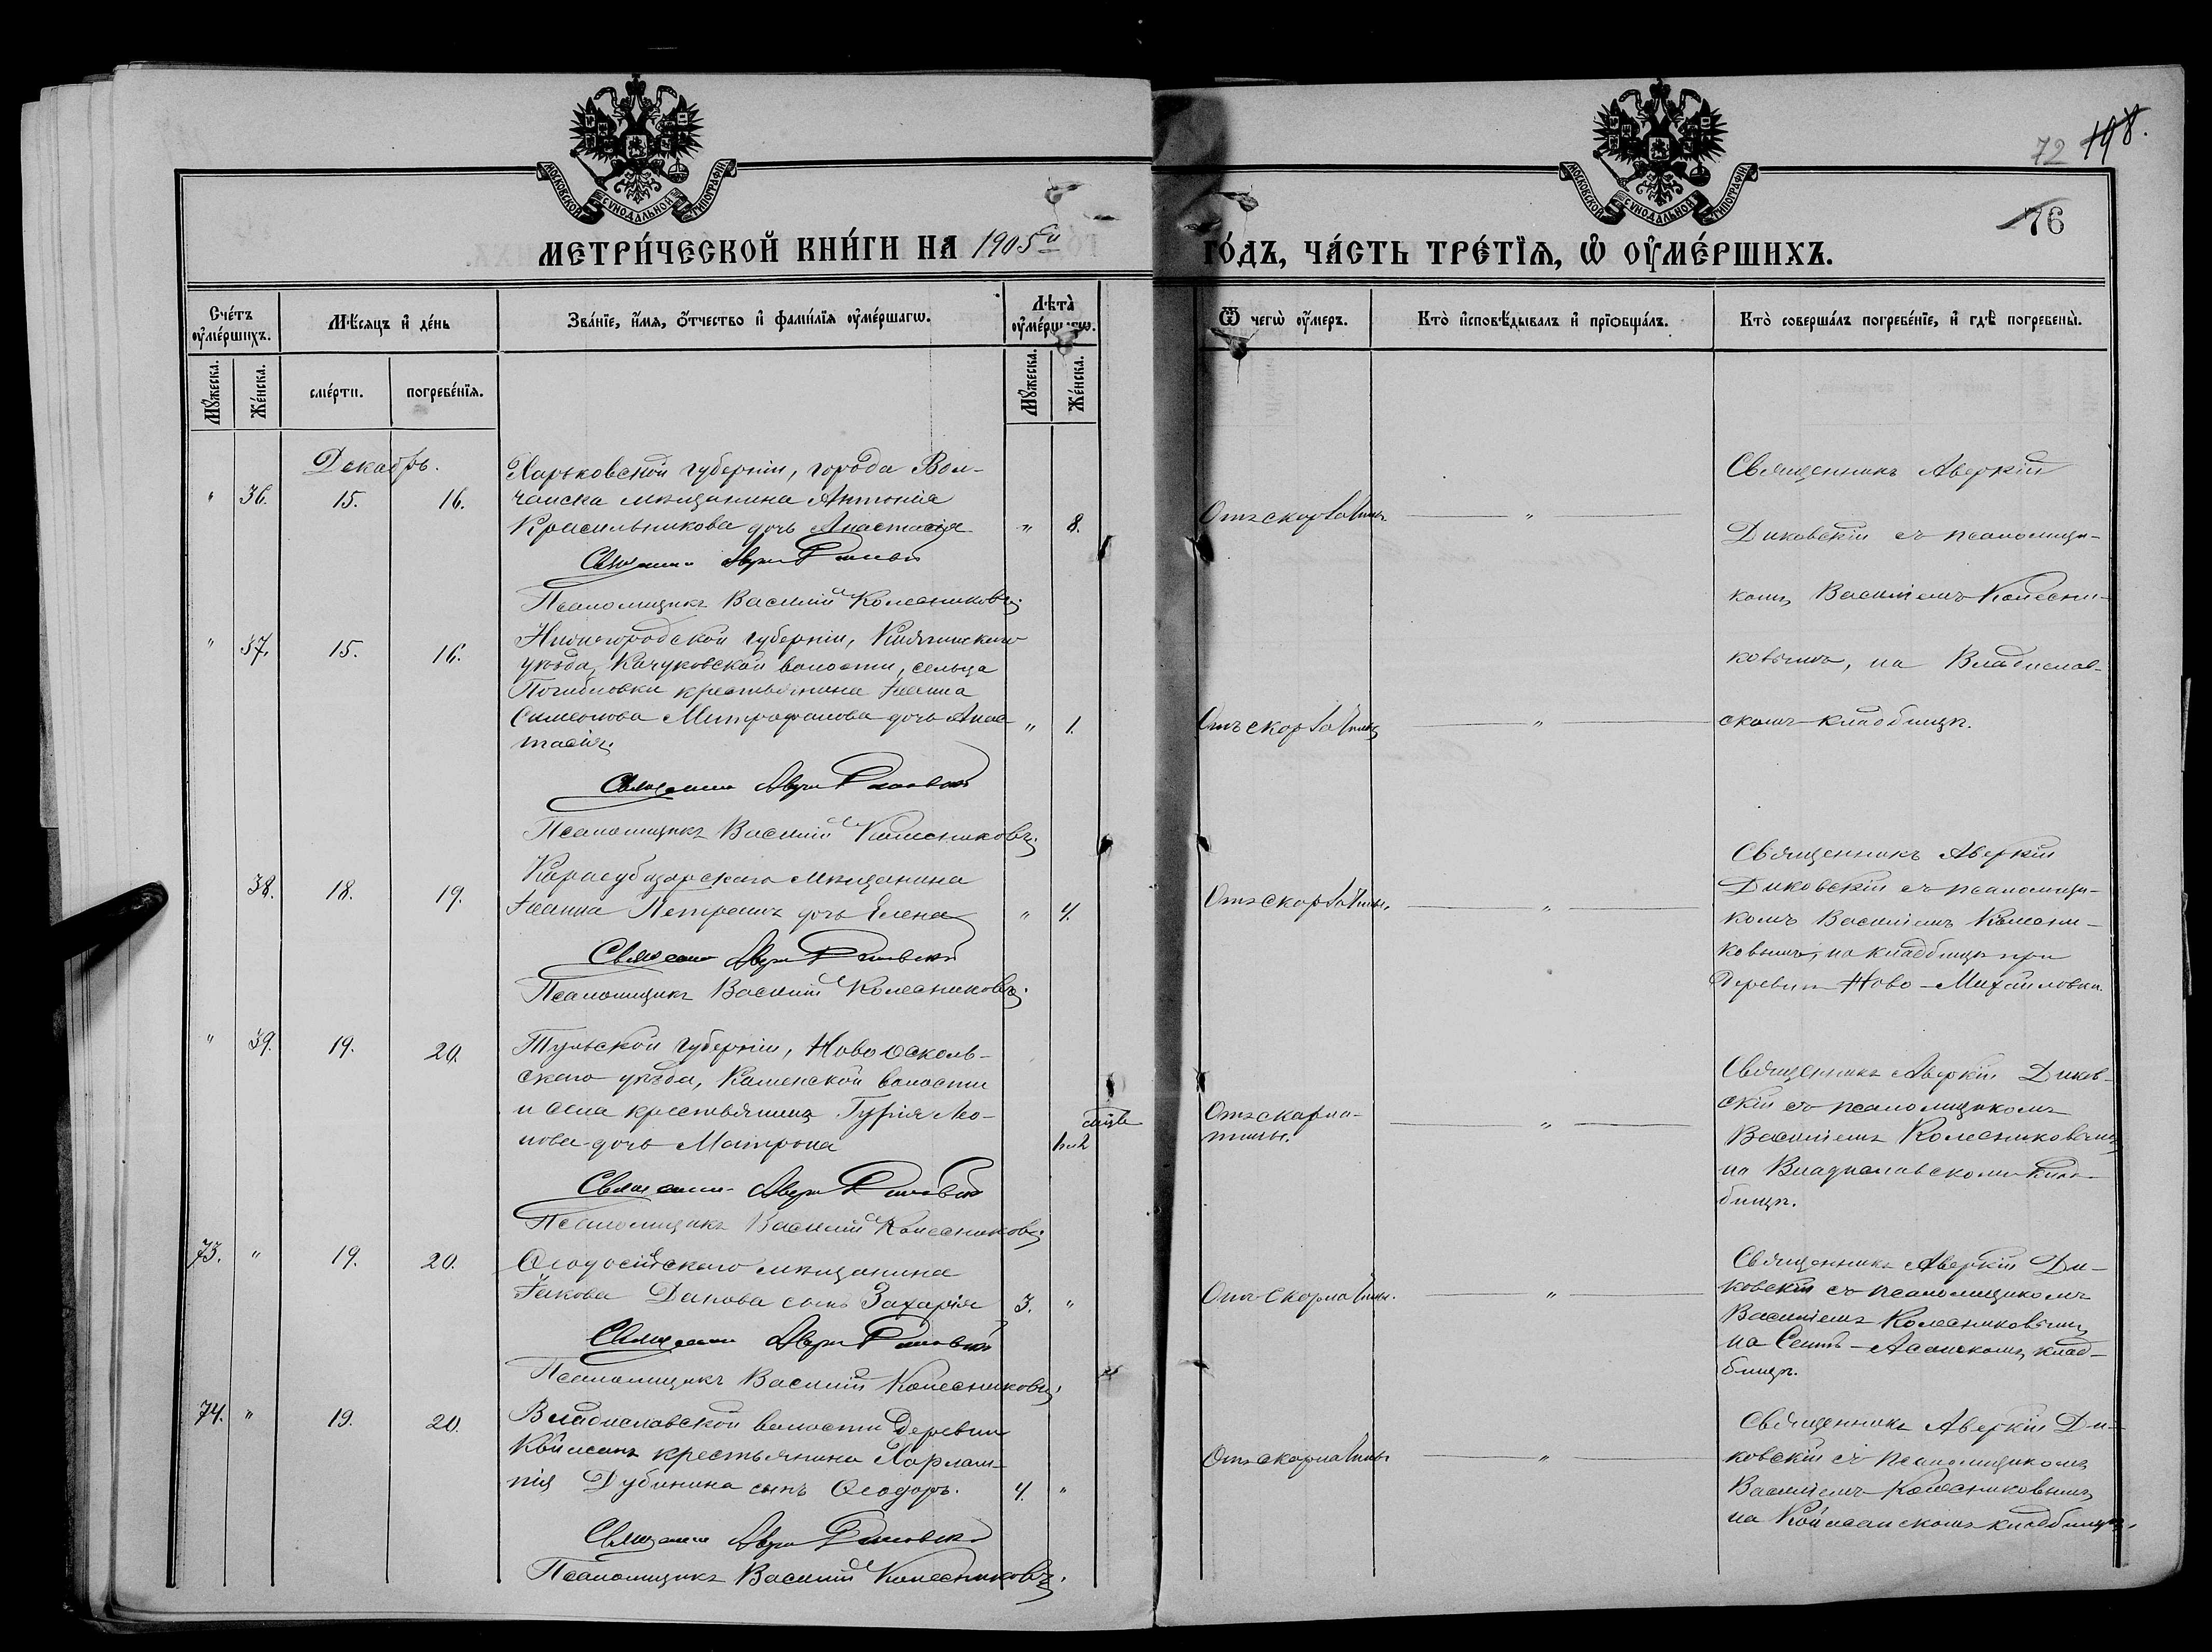 МОСКОВСКОЙ СУНОДАЛЬНОЙ ТИПОГРАФІИ
МОСКОВСКОЙ СУНОДАЛЬНОЙ ТИПОГРАФІИ
72 198.
76
МЕТРИ́ЧЕСКОЙ КНИ́ГИ НА 1905й
ГО́ДЪ, ЧА́СТЬ ТРЕ́ТЇѦ, Ѡ҆ ОУ҆МЕ́РШИХЪ.
Сче́тъ оу҆ме́ршихъ.
Мѣ́сяцъ и҆ де́нь
Зва́нїе, и҆́мя, ѻ҆́тчество и҆ фами́лїя оу҆ме́ршагѡ.
Лѣта̀ оу҆ме́ршагѡ.
Ѿ чегѡ̀ оу҆́меръ.
Кто̀ и҆сповѣ́дывалъ и҆ прїѡбща́лъ.
Кто̀ соверша́лъ погребе́нїе, и҆ гдѣ̀ погребены̀.
Мꙋ́жеска.
Же́нска.
сме́рти.
погребе́нїѧ.
Мꙋ́жеска.
Же́нска.
Декабрь.
" 36. 15. 16.
Харьковской губерніи, города Вол-
чанска мѣщанина Антонія
Красильникова дочь Анастасія " 8.
Священникъ Аверкій Диковскій
Псаломщикъ Василій Колесниковъ.
Отъ скарлатины "
Священникъ Аверкій
Диковскій съ псаломщи-
комъ Василіемъ Колесни-
ковымъ, на Владислав-
скомъ кладбищѣ.
" 37. 15. 16.
Нижегородской губерніи, Княгининскаго
уѣзда, волости, сельца
крестьянина Іоанна
Симеонова Митрофанова дочь Анас- " 1.
тасія.
Священникъ Аверкій Диковскій
Псаломщикъ Василій Колесниковъ.
Отъ скарлатины "
38. 18. 19.
Карасубазарскаго мѣщанина
Іоанна дочь Елена " 4.
Священникъ Аверкій Диковскій
Псаломщикъ Василій Колесниковъ.
Отъ скарлатины. "
Священникъ Аверкій
Диковскій съ псаломщи-
комъ Василіемъ Колесни-
ковымъ, на кладбищѣ при
деревни Ново-Михайловки.
" 39. 19. 20.
Тульской губерніи, Новоосколь-
скаго уѣзда, Каменской волости
и села крестьянина Гурія
дочь Матрона
Священникъ Аверкій Диковскій
Псаломщикъ Василій Колесниковъ.
Отъ скарла-
тины. "
Священникъ Аверкій Диков-
скій съ псаломщикомъ
Василіемъ Колесниковымъ
на Владиславскомъ клад-
бищѣ.
73. " 19. 20.
Ѳеодосійскаго мѣщанина
Іакова Данова сынъ Захарія 3. "
Священникъ Аверкій Диковскій
Псаломщикъ Василій Колесниковъ.
Отъ скарлатины. "
Священникъ Аверкій Ди-
ковскій съ псаломщикомъ
Василіемъ Колесниковымъ
на Сеитъ-Асанскомъ клад-
бищѣ.
74. " 19. 20.
Владиславской волости деревни
Койасанъ крестьянина Харлам-
пія Дубинина сынъ Ѳеодоръ. 4. "
Священникъ Аверкій Диковскій
Псаломщикъ Василій Колесниковъ.
Отъ скарлатины "
Священникъ Аверкій Ди-
ковскій съ псаломщикомъ
Василіемъ Колесниковымъ
на Койасанскомъ кладбищѣ.